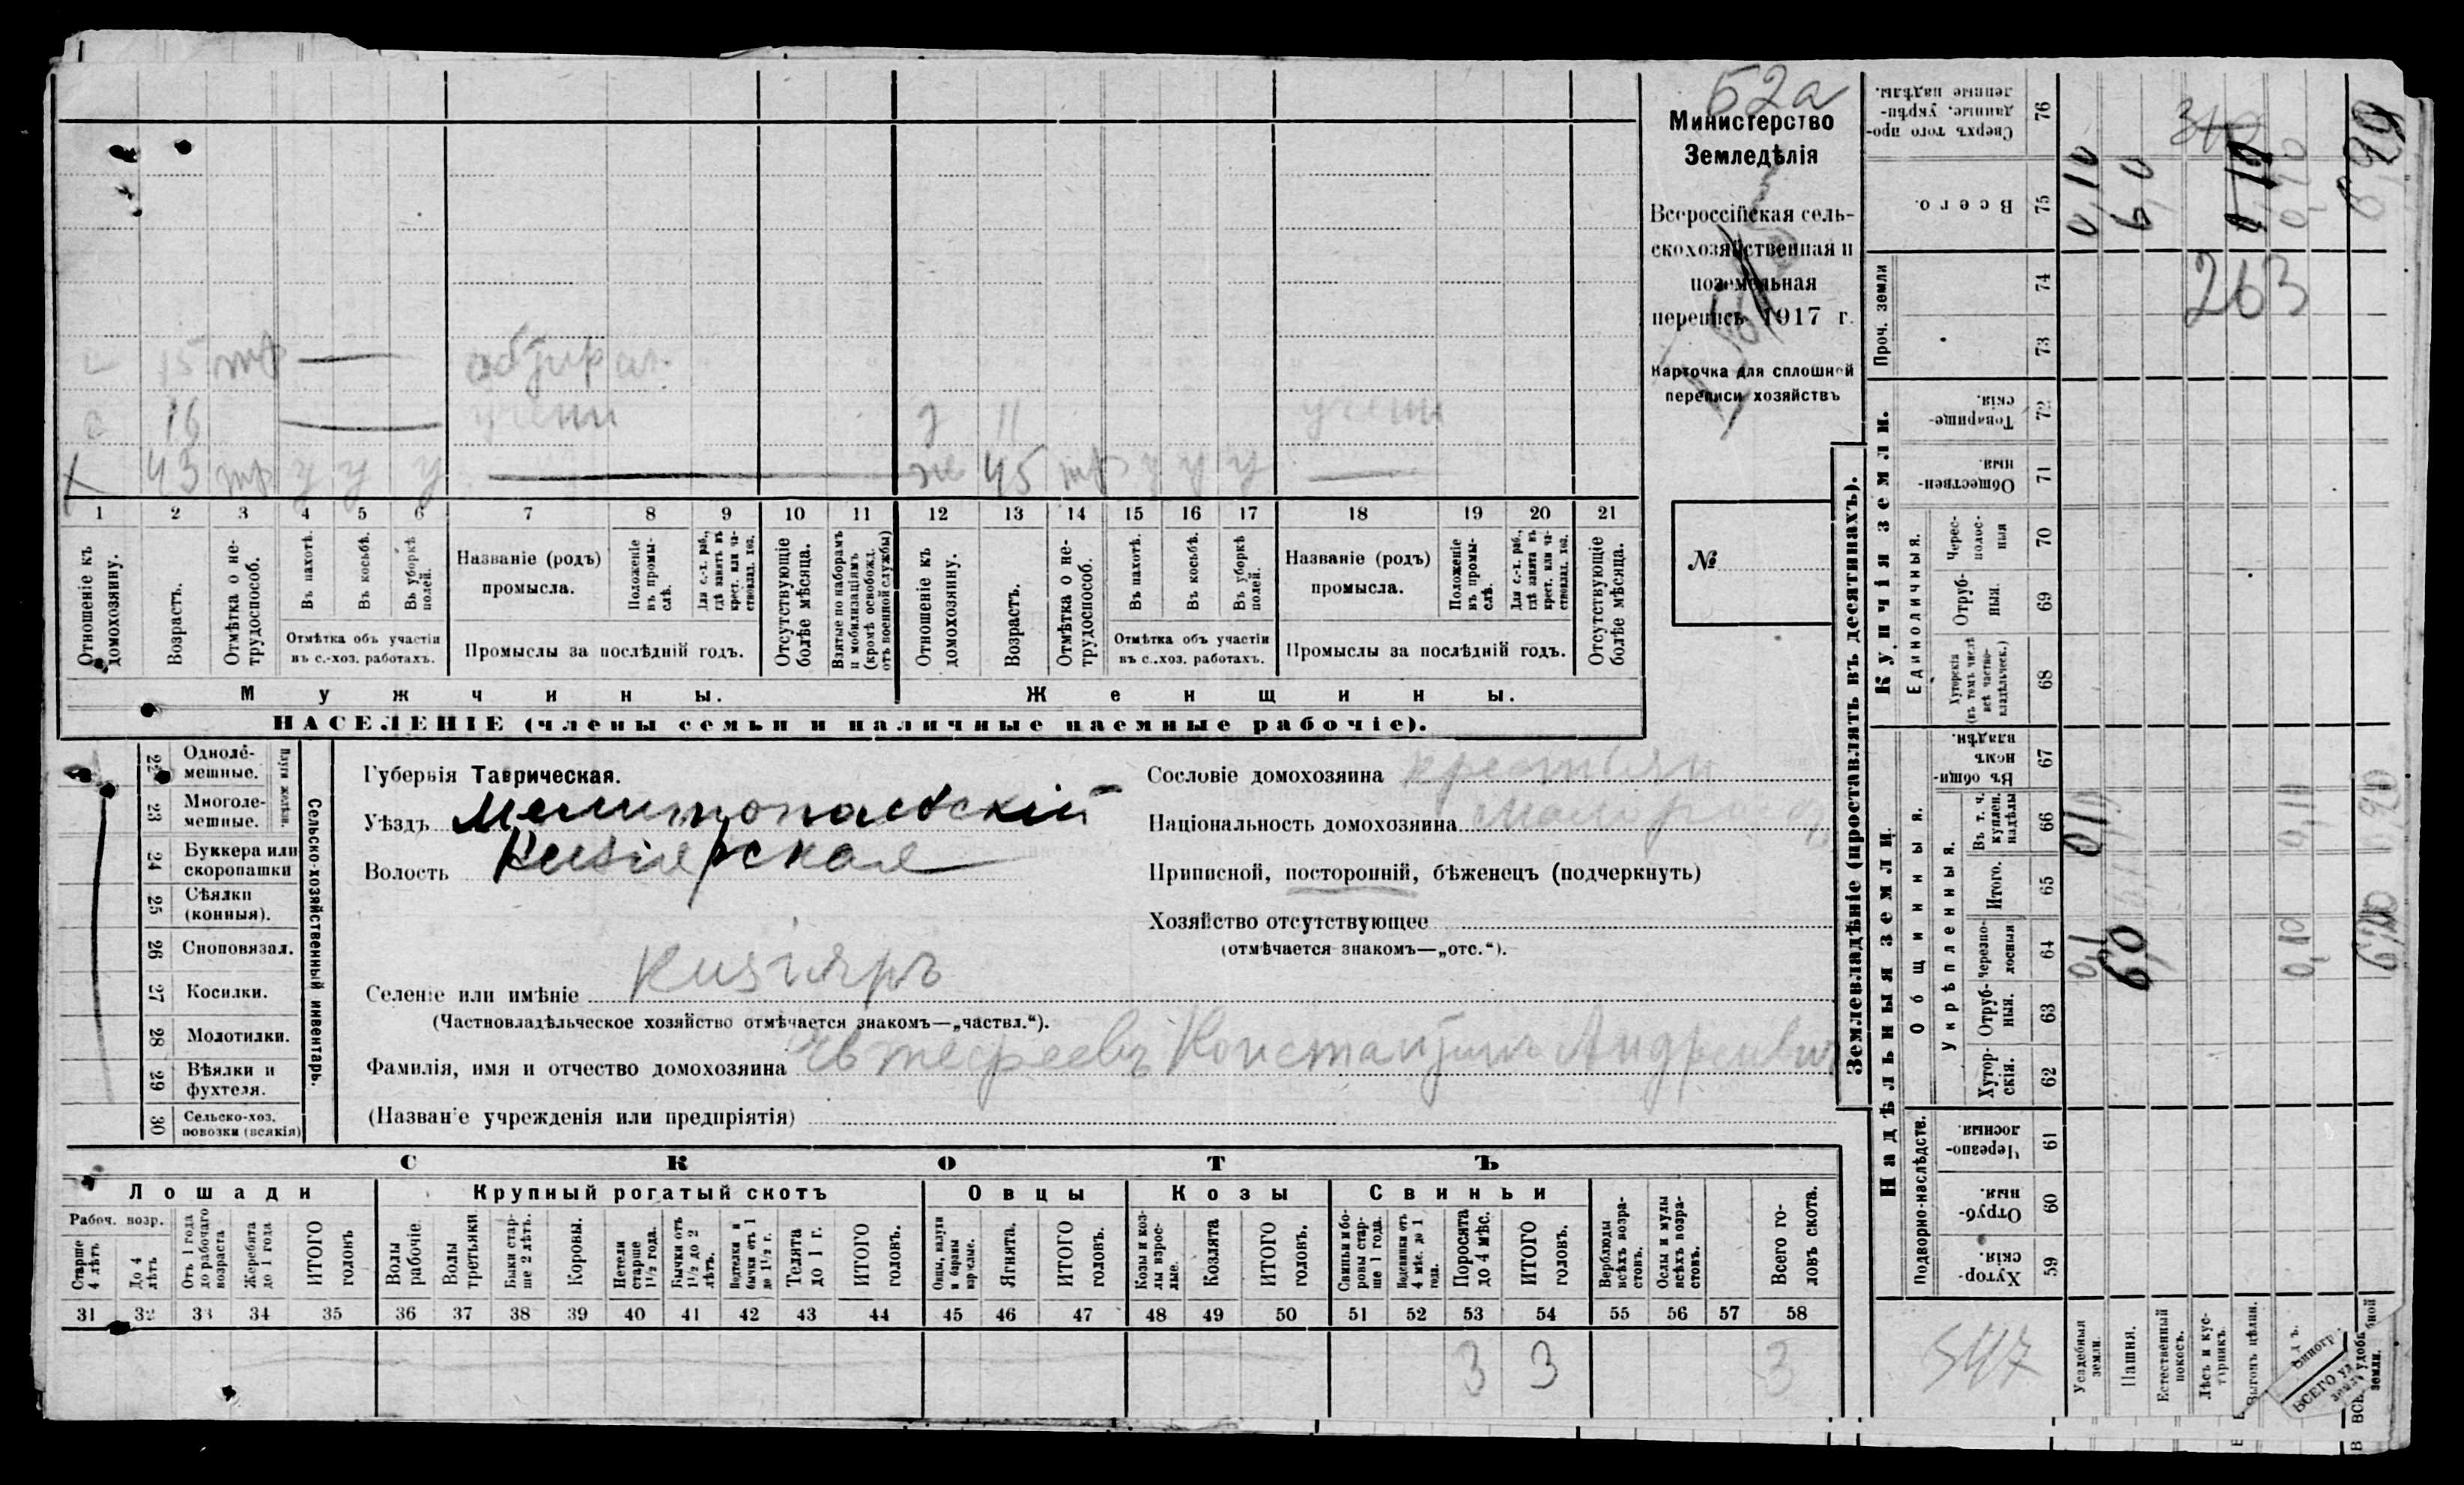 52а
Министерство
Земледѣлія
Всероссійская сель-
скохозяйственная и
поземельная
перепись 1917 г.
Карточка для сплошной
переписи хозяйствъ
№
с 15 тр
с 16 учени д 11 учени
х 43 тр у у у ж 45 тр у у у
1 2 3 4 5 6 7 8 9 10 11 12 13 14 15 16 17 18 19 20 21
Отношеніе къ домохозяину.
Возрастъ.
Отмѣтка о не-трудоспособ.
Въ пахотѣ.
Въ косьбѣ.
Въ уборкѣ полей.
Отмѣтка объ участіи
въ с.-хоз. работахъ.
Названіе (родъ)
промысла.
Положеніе въ промы-слѣ.
Для с.-х. раб., гдѣ занятъ въ крест. или ча-стновлад. хоз.
Промыслы за послѣдній годъ.
Отсутствующіе болѣе мѣсяца.
Взятые по наборамъ и мобилизаціямъ (кромѣ освобожд. отъ военной службы)
Отношеніе къ домохозяину.
Возрастъ.
Отмѣтка о не-трудоспособ.
Въ пахотѣ.
Въ косьбѣ.
Въ уборкѣ полей.
Отмѣтка объ участіи
въ с..хоз. работахъ.
Названіе (родъ)
промысла.
Положеніе въ промы-слѣ.
Для с.-х. раб., гдѣ занята въ крест. или ча-стновлад. хоз.
Промыслы за послѣдній годъ.
Отсутствующіе болѣе мѣсяца.
Мужчины.
Женщины.
НАСЕЛЕНІЕ (члены семьи и наличные наемные рабочіе).
22 Одноле-мешные.
Плуги желѣзн.
23 Многоле-мешные.
24 Буккера или скоропашки
25 Сѣялки (конныя).
26 Сноповязал.
27 Косилки.
28 Молотилки.
29 Вѣялки и фухтеля.
30 Сельско-хоз. повозки (всякія)
Сельско-хозяйственный инвентарь.
Губернія Таврическая.
Уѣздъ Мелитопольскій
Волость Кизіярская
Селеніе или имѣніе Кизіяръ
(Частновладѣльческое хозяйство отмѣчается знакомъ—„частвл.“).
Фамилія, имя и отчество домохозяина Евтефеевъ Константинъ Андреевич
(Названіе учрежденія или предпріятія)
Сословіе домохозяина крестьян
Національность домохозяина
Приписной, посторонній, бѣженецъ (подчеркнуть)
Хозяйство отсутствующее
(отмѣчается знакомъ—„отс.“).
СКОТЪ
Лошади
Крупный рогатый скотъ
Овцы
Козы
Свиньи
Рабоч. возр.
Старше 4 лѣтъ
До 4 лѣтъ
Отъ 1 года до рабочаго возраста
Жеребята до 1 года
ИТОГО головъ
Волы рабочіе.
Волы третьяки.
Быки стар-ше 2 лѣтъ.
Коровы.
Нетели старше 1½ года.
Бычки отъ 1½ до 2 лѣтъ.
Подтелки и бычки отъ 1 до 1½ г.
Телята до 1 г.
ИТОГО головъ.
Овцы, валухи и бараны взрослые.
Ягнята.
ИТОГО головъ.
Козы и коз-лы взрос-лые.
Козлята
ИТОГО головъ.
Свиньи и бо-ровы стар-ше 1 года.
Подсвинки отъ 4 мѣс. до 1 года.
Поросята до 4 мѣс.
ИТОГО головъ.
Верблюды всѣхъ возра-стовъ.
Ослы и мулы всѣхъ возра-стовъ.
Всего го-ловъ скота.
31 32 33 34 35 36 37 38 39 40 41 42 43 44 45 46 47 48 49 50 51 52 53 54 55 56 57 58
3 3 3
Землевладѣніе (проставлять въ десятинахъ).
Надѣльныя земли.
Купчія земли.
Проч. земли
Подворно-наслѣдств.
Общинныя.
Укрѣпленныя.
Единоличныя.
59 Хутор-скія.
60 Отруб-ныя.
61 Черезпо-лосныя.
62 Хутор-скія.
63 Отруб-ныя.
64 Черезпо-лосныя
65 Итого.
66 Въ т. ч. куплен. надѣлы
67 Въ общи-номъ владѣн.
68 Хуторскія (въ томъ числѣ всѣ частно-владѣльческ.)
69 Отруб-ныя.
70 Черес-полос-ныя
71 Обществен-ныя.
72 Товарище-скія.
73
74
75 Всего.
76 Сверхъ того про-данные, укрѣп-ленные надѣлы.
Усадебныя земли.
0,1 0,10
Пашня.
6,0 6,0
Естественный покосъ.
Лѣсъ и кус-тарникъ.
Выгонъ цѣлин.
263
547